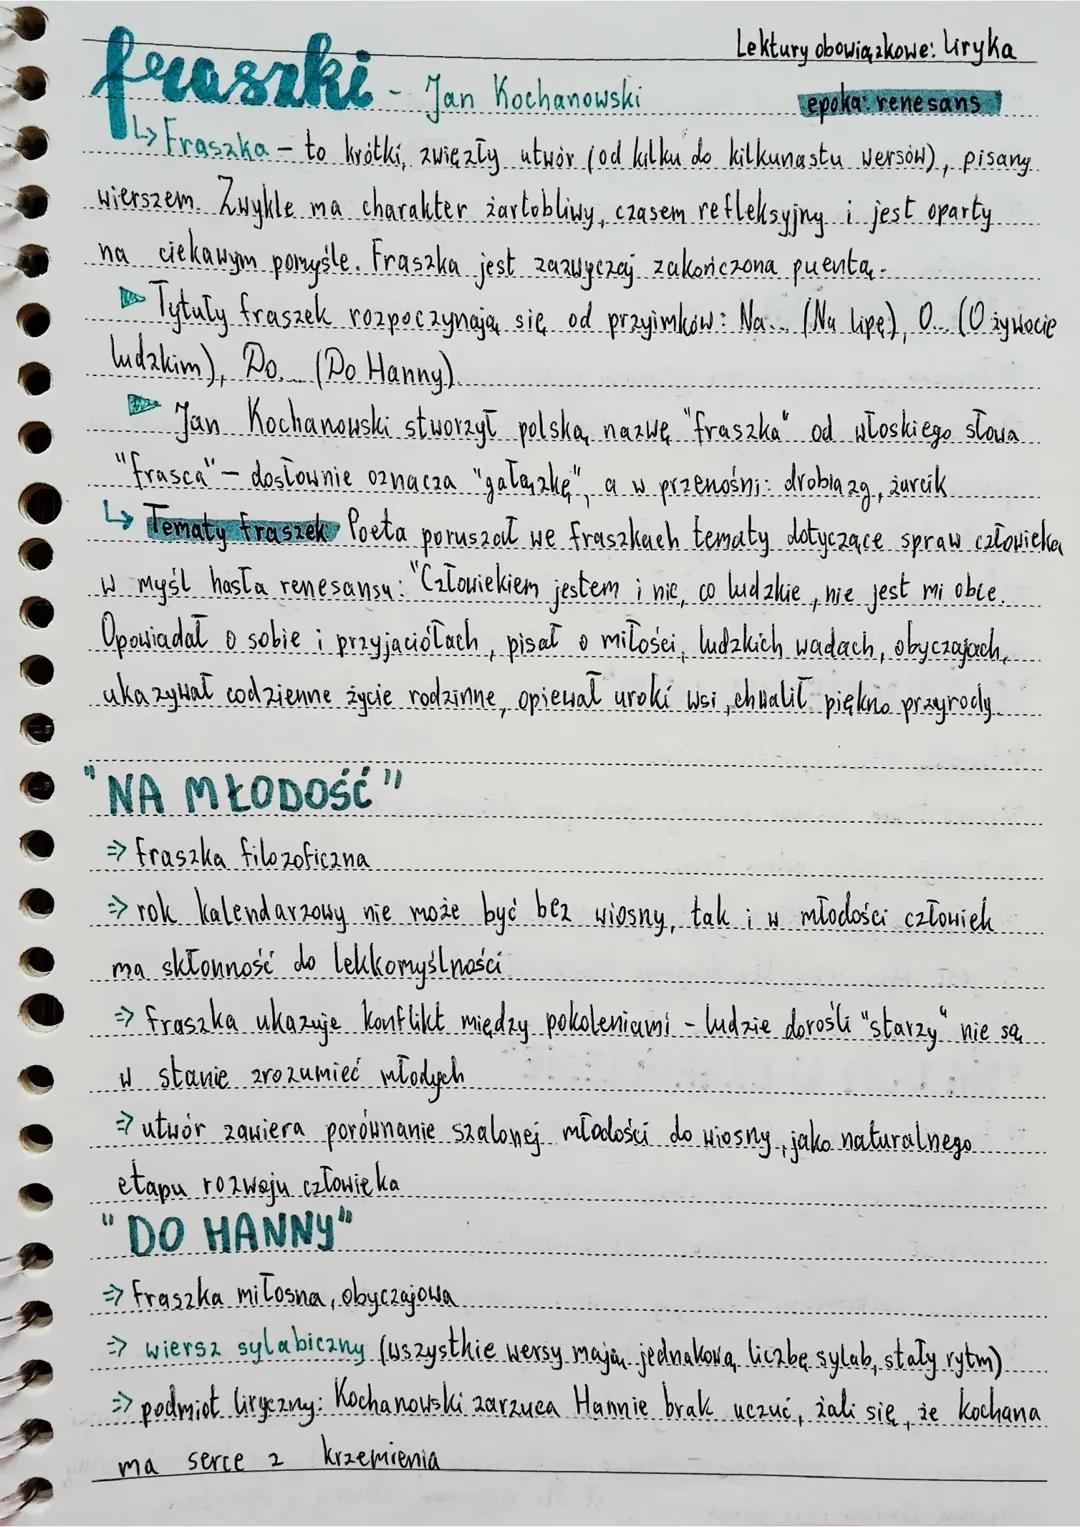 Lektury obowiązkowe: liryka
fraszki - Jan Kochanowski
epoka: renesans
↳ Fraszka – to krótki, zwięzły utwór (od kilku do kilkunastu wersów), pisany
wierszem. Zwykle ma charakter żartobliwy, czasem refleksyjny i jest oparty
na ciekawym pomyśle. Fraszka jest zazwyczaj zakończona puentą.
▷ Tytuły fraszek rozpoczynają się od przyimków: Na... (Na lipę), O... (O żywocie
ludzkim), Do... (Do Hanny)
▷ Jan Kochanowski stworzył polską nazwę "fraszka" od włoskiego słowa
"frasca" – dosłownie oznacza "gałązkę", a w przenośni: drobiazg, żarcik
↳ Tematy fraszek Poeta poruszał we fraszkach tematy dotyczące spraw człowieka
w myśl hasła renesansu: "Człowiekiem jestem i nic, co ludzkie, nie jest mi obce.
Opowiadał o sobie i przyjaciołach, pisał o miłości, ludzkich wadach, obyczajach,
ukazywał codzienne życie rodzinne, opiewał uroki wsi, chwalił piękno przyrody
"NA MŁODOŚĆ"
⇒ fraszka filozoficzna
⇒ rok kalendarzowy nie może być bez wiosny, tak i w młodości człowiek
ma skłonność do lekkomyślności
⇒ fraszka ukazuje konflikt między pokoleniami – ludzie dorośli "starzy" nie są
w stanie zrozumieć młodych
⇒ utwór zawiera porównanie szalonej młodości do wiosny, jako naturalnego
etapu rozwoju człowieka
"DO HANNY"
⇒ fraszka miłosna, obyczajowa
⇒ wiersz sylabiczny (wszystkie wersy mają jednakową liczbę sylab, stały rytm)
⇒ podmiot liryczny: Kochanowski zarzuca Hannie brak uczuć, żali się, że kochana
ma serce z krzemienia